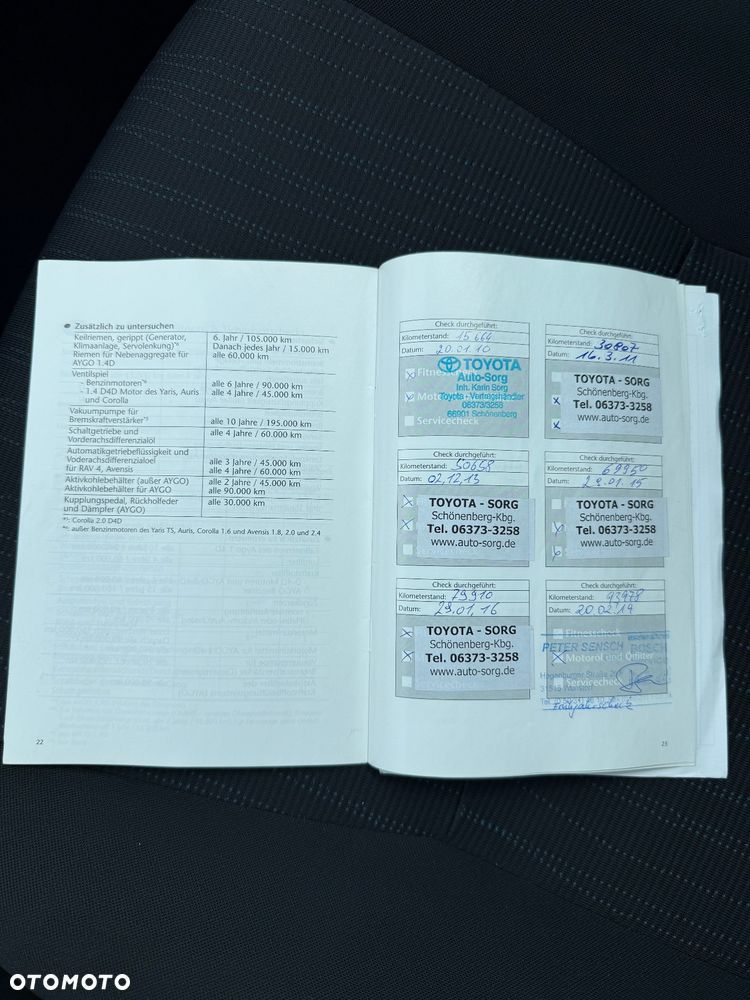 Zusätzlich zu untersuchen
Keilriemen, gerippt (Generator, 6. Jahr / 105.000 km
Klimaanlage, Servolenkung)*⁶ Danach jedes Jahr / 15.000 km
Riemen für Nebenaggregate für alle 60.000 km
AYGO 1.4D
Ventilspiel
- Benzinmotoren*⁶ alle 6 Jahre / 90.000 km
- 1.4 D4D Motor des Yaris, Auris alle 4 Jahre / 45.000 km
und Corolla
Vakuumpumpe für
Bremskraftverstärker*³ alle 10 Jahre / 195.000 km
Schaltgetriebe und alle 4 Jahre / 60.000 km
Vorderachsdifferenzialöl
Automatikgetriebeflüssigkeit und
Vorderachsdifferenzialoel alle 3 Jahre / 45.000 km
für RAV 4, Avensis alle 4 Jahre / 60.000 km
Aktivkohlebehälter (außer AYGO) alle 2 Jahre / 45.000 km
Aktivkohlebehälter für AYGO alle 90.000 km
Kupplungspedal, Rückholfeder alle 30.000 km
und Dämpfer (AYGO)
: Corolla 2.0 D4D
: außer Benzinmotoren des Yaris TS, Auris, Corolla 1.6 und Avensis 1.8, 2.0 und 2.4
22
Check durchgeführt:
Kilometerstand: 15.664
Datum: 20.01.10
TOYOTA
Auto-Sorg
Inh. Karin Sorg
Toyota - Vertragshändler
06373/3258
66901 Schönenberg
Servicecheck
Check durchgeführt:
Kilometerstand: 30807
Datum: 16.3.11
TOYOTA - SORG
Schönenberg-Kbg.
Tel. 06373-3258
www.auto-sorg.de
Check durchgeführt:
Kilometerstand: 50658
Datum: 02,12,13
TOYOTA - SORG
Schönenberg-Kbg.
Tel. 06373-3258
www.auto-sorg.de
Check durchgeführt:
Kilometerstand: 69950
Datum: 29.01.15
TOYOTA - SORG
Schönenberg-Kbg.
Tel. 06373-3258
www.auto-sorg.de
Check durchgeführt:
Kilometerstand: 79910
Datum: 29.01.16
TOYOTA - SORG
Schönenberg-Kbg.
Tel. 06373-3258
www.auto-sorg.de
Check durchgeführt:
Kilometerstand: 93978
Datum: 20.02.19
Fitnesscheck
PETER SENSCH BOSCH
Motoröl und Ölfilter
Hagenburger Straße
Servicecheck
31515 Wunstorf
23
OTOMOTO